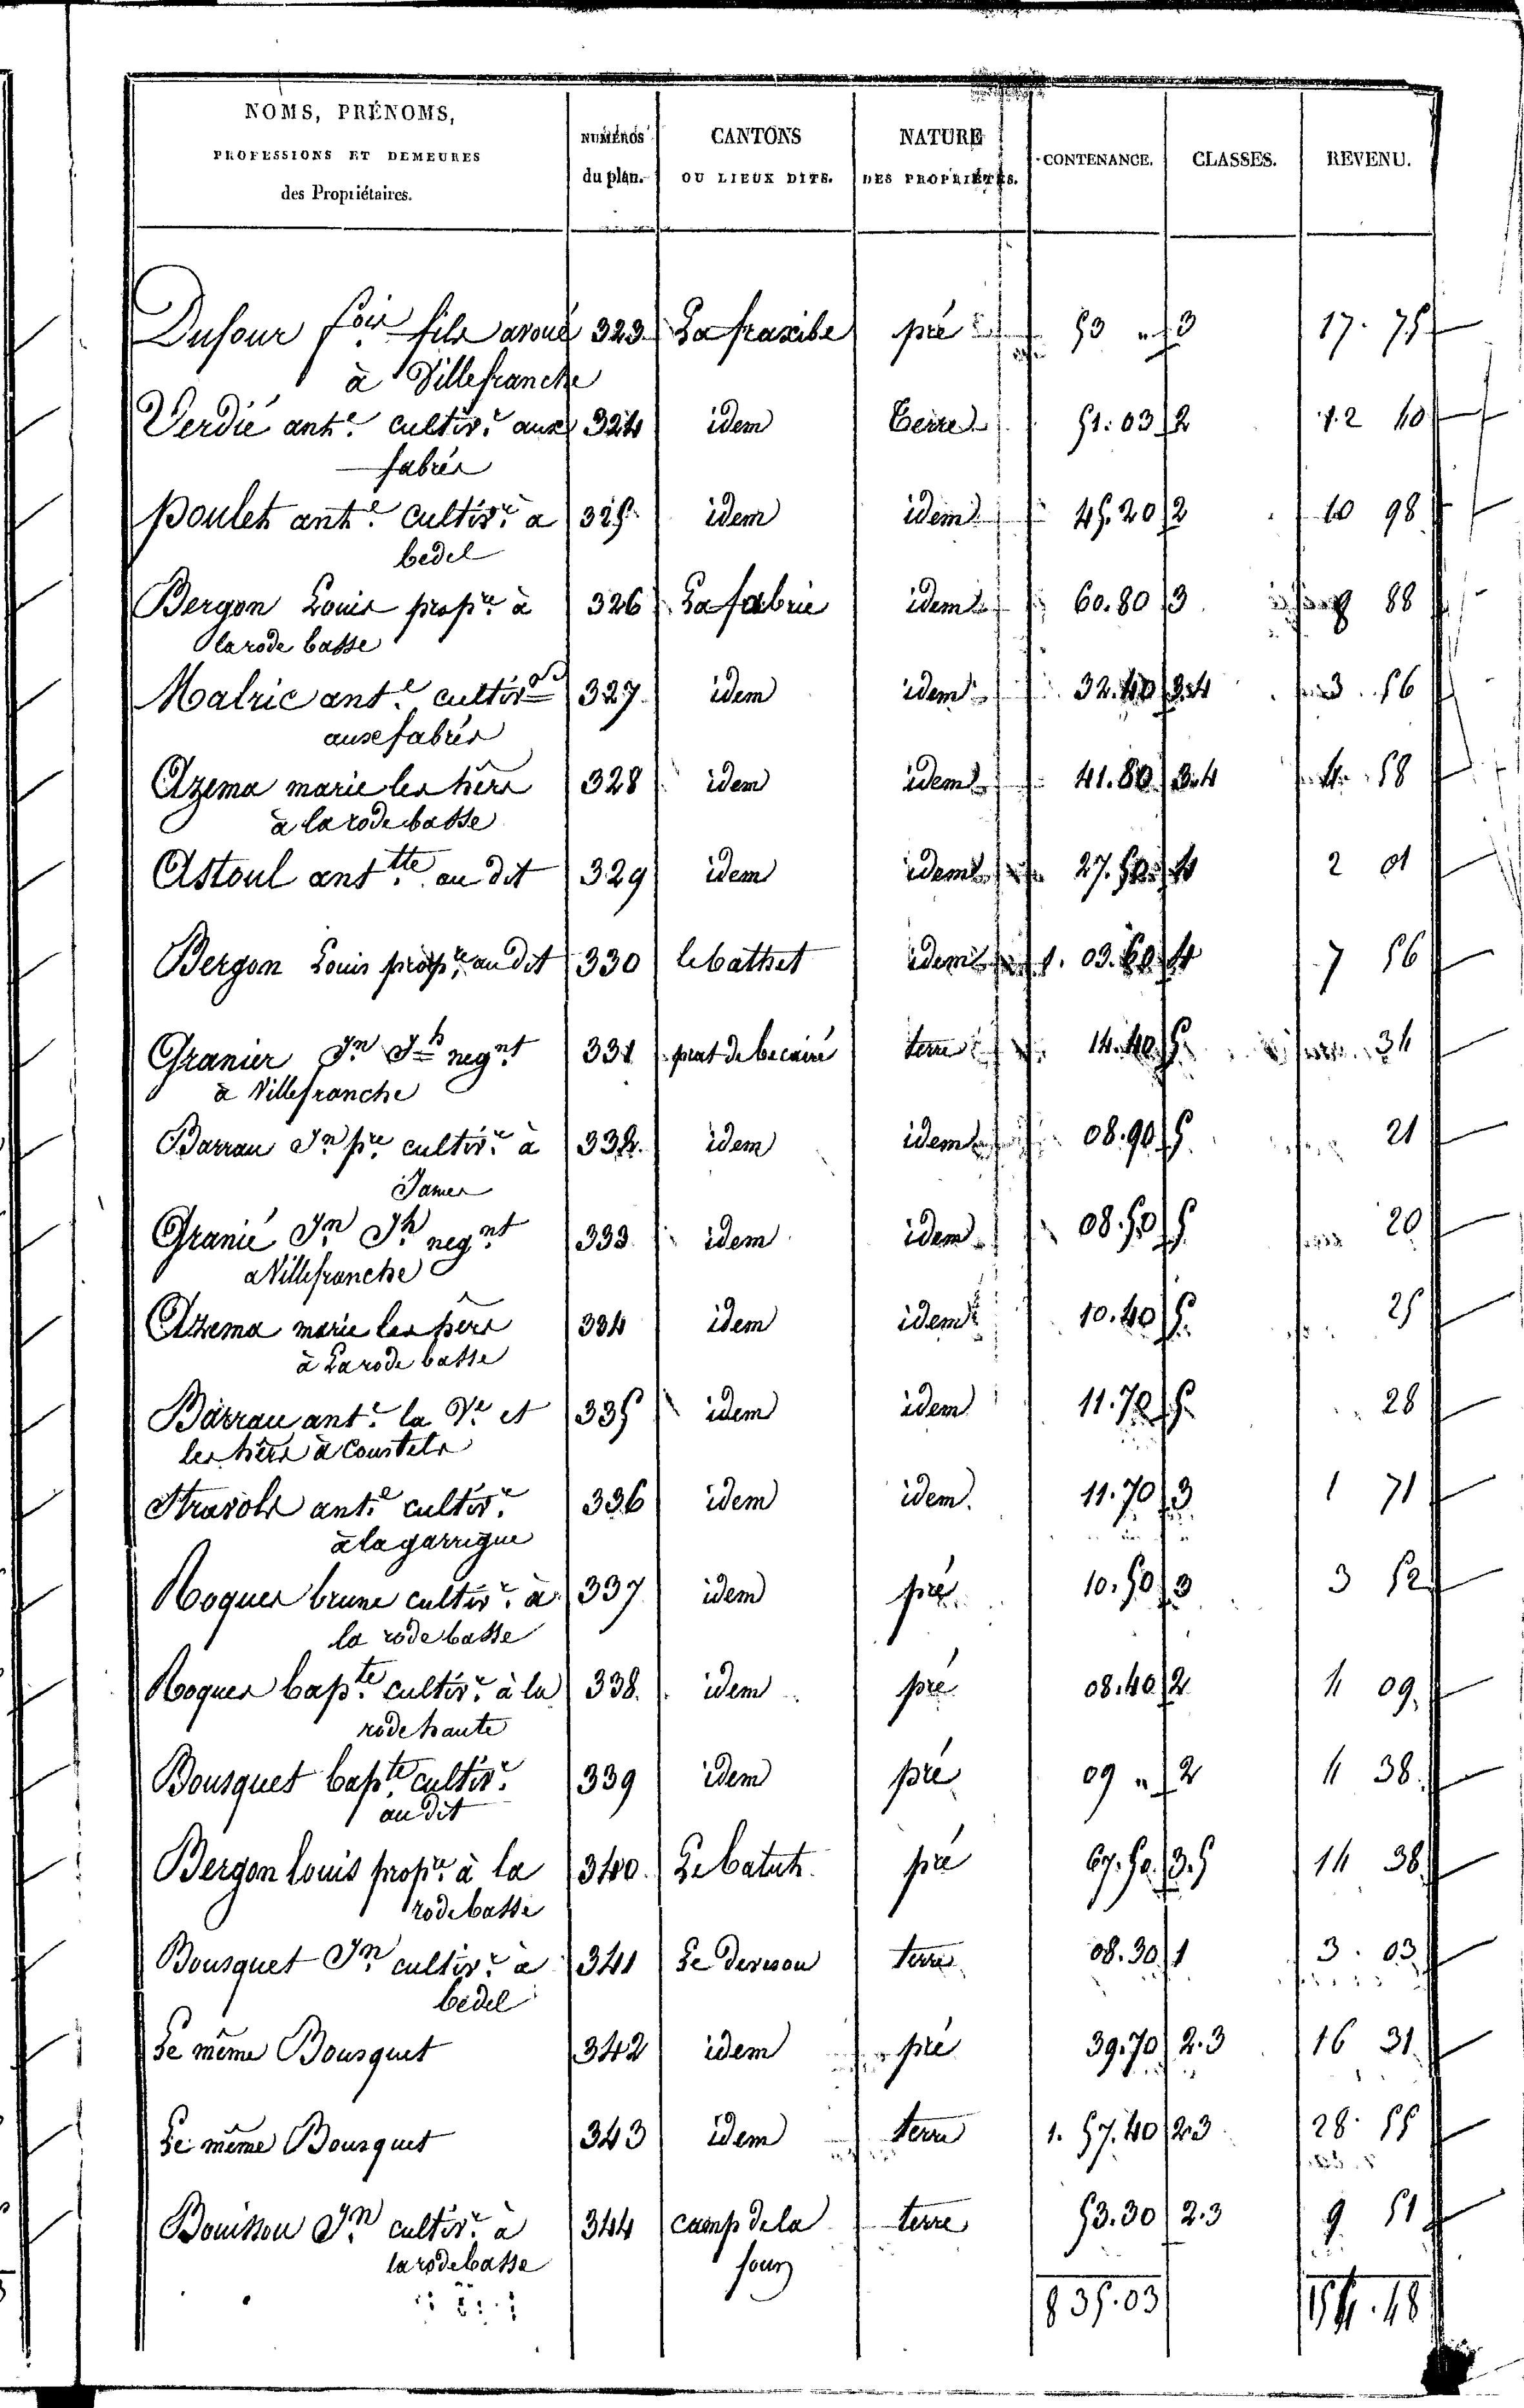 NOMS, PRÉNOMS,
PROFESSIONS ET DEMEURES
des Propriétaires.
NUMÉROS
du plan.
CANTONS
OU LIEUX DITS.
NATURE
DES PROPRIÉTÉS.
CONTENANCE.
CLASSES.
REVENU.
Dufour fois. fils avoué 323 La fraxibe pré 53 " 3 17. 75
à Villefranche
Verdié ante. cultivr. aux 324 idem terre 51.03 2 12 40
fabrés
Poulet ante. cultivr. a 325 idem idem 45.20 2 10 98
bedel
Bergon Louis propre. à 326 La fabrie idem 60.80 3 8 88
larode basse
Malric ante. cultivr. 327 idem idem 32.40 3.4 3.56
aux fabrés
Azema marie les hêrs 328 idem idem 41.80 3.4 4.58
à la rode basse
Astoul antte. au dit 329 idem idem 27.50 4 2 01
Bergon Louis propre. au dit 330 le bathet idem 1. 03.60 4 7 56
Granier Jn. Jh negnt. 331 prat de becairé terre 14.40 5 34
à Villefranche
Barrau Jn. pre. cultivr. à 332. idem idem 08.90 5 21
James
Granié Jn. Jh. negnt. 333 idem idem 08.50 5 20
a Villefranche
Azema marie les hêrs 334 idem idem 10.40 5 25
à Larode basse
Barrau ante. la Ve. et 335 idem idem 11.70 5 28
les hêrs à Coustels
Stravols ante. cultivr. 336 idem idem. 11.70 3 1 71
à la garrigue
Roques brune cultivr. à 337 idem pré 10.50 3 3 52
la rode basse
Roques bapte. cultivr. à la 338. idem pré 08.40 2 4 09.
rode haute
Bousquet bapte. cultivr. 339 idem pré 09 " 2 4 38.
au dit
Bergon louis propre. à la 340. Le batut pré 67.50. 3.5 14 38
rode basse
Bousquet Jn. cultivr. à 341 Le dervou terre 08.30 1 3.03
bedel
Le même Bousquet 342 idem pré 39.70 2.3 16 31
Le même Bousquet 343 idem terre 1. 57.40 2.3 28.55
Bouissou Jn. cultivr. à 344 camp de la terre 53.30 2.3 9 51
la rode basse foun
8 35.03 154.48